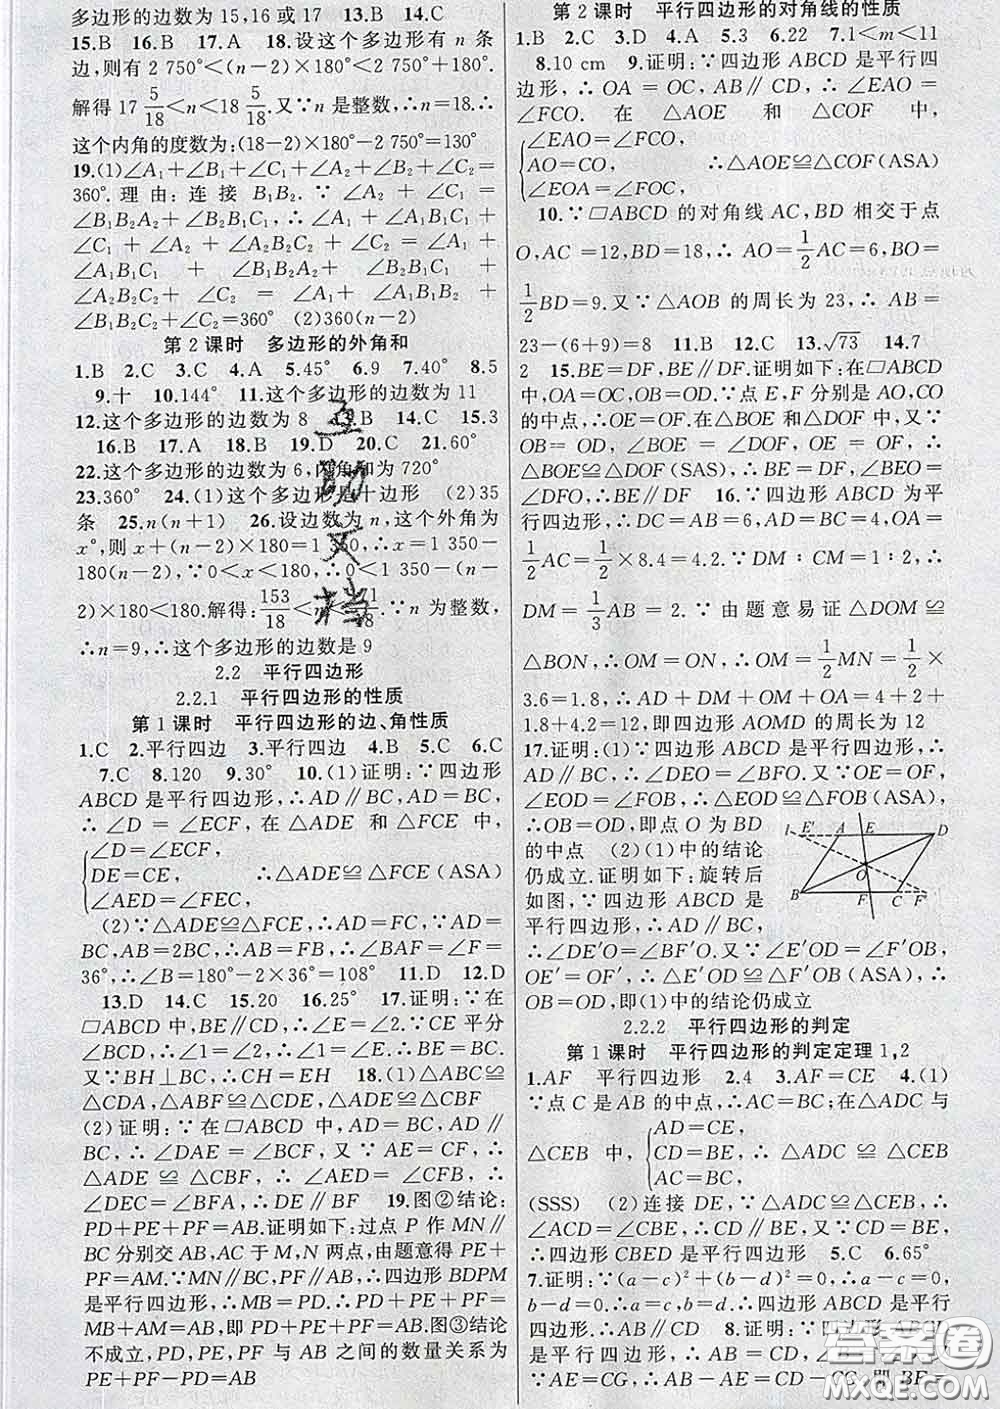 多边形的边数为 15,16 或 17 13.B 14.C
15.B 16.B 17.A 18.设这个多边形有 n 条
边,则有 2 750°<(n-2)×180°<2 750°+180°.
解得 17 5/18<n<18 5/18.又∵n 是整数,∴n=18.∴
这个内角的度数为:(18-2)×180°-2 750°=130°
19.(1)∠A1+∠B1+∠C1+∠A2+∠B2+∠C2=
360°. 理由: 连接 B1B2. ∵∠A2+∠C1=
∠B1B2A2+∠B2B1C1,∴∠A1+∠A1B1C1+
∠C1+∠A2+∠A2B2C2+∠C2=∠A1+
∠A1B1C1+∠B1B2A2+∠B2B1C1+
∠A2B2C2+∠C2=∠A1+∠A1B1B2+
∠B1B2C2+∠C2=360° (2)360(n-2)
第 2 课时 多边形的外角和
1.B 2.C 3.C 4.A 5.45° 6.9 7.40° 8.5
9.十 10.144° 11.这个多边形的边数为 11
12.这个多边形的边数为 8 13.B 14.C 15.3
16.B 17.A 18.B 19.D 20.C 21.60°
22.这个多边形的边数为 6,内角和为 720°
23.360° 24.(1)这个多边形是十边形 (2)35
条 25.n(n+1) 26.设边数为 n,这个外角为
x°,则 x+(n-2)×180=1 350,∴x=1 350-
180(n-2).∵0<x<180,∴0<1 350-(n-
2)×180<180.解得:153/18<n< .∵n 为整数,
∴n=9,∴这个多边形的边数是 9
2.2 平行四边形
2.2.1 平行四边形的性质
第 1 课时 平行四边形的边、角性质
1.C 2.平行四边 3.平行四边 4.B 5.C 6.C
7.C 8.120 9.30° 10.(1)证明:∵四边形
ABCD 是平行四边形,∴AD∥BC,AD=BC,
∴∠D=∠ECF, 在△ADE 和△FCE 中,
{∠D=∠ECF,
DE=CE, ∴△ADE≌△FCE(ASA)
∠AED=∠FEC,
(2)∵△ADE≌△FCE,∴AD=FC,∵AD=
BC,AB=2BC,∴AB=FB,∴∠BAF=∠F=
36°,∴∠B=180°-2×36°=108° 11.D 12.D
13.D 14.C 15.20 16.25° 17.证明:∵在
▱ABCD 中,BE∥CD,∴∠E=∠2.∵CE 平分
∠BCD,∴∠1=∠2,∴∠1=∠E,∴BE=BC.
又∵BH⊥BC,∴CH=EH 18.(1)△ABC≌
△CDA,△ABF≌△CDE,△ADE≌△CBF
(2)证明:∵在▱ABCD 中,AD=BC,AD∥
BC, ∴∠DAE=∠BCF, 又∵AE=CF, ∴
△ADE≌△CBF, ∴∠AED=∠CFB, ∴
∠DEC=∠BFA,∴DE∥BF 19.图②结论:
PD+PE+PF=AB.证明如下:过点 P 作 MN∥
BC 分别交 AB,AC 于 M,N 两点,由题意得 PE+
PF=AM.∵MN∥BC,PF∥AB,∴四边形 BDPM
是平行四边形,∴MB=PD.∴PD+PE+PF=
MB+AM=AB,即 PD+PE+PF=AB.图③结论
不成立,PD,PE,PF 与 AB 之间的数量关系为
PE+PF-PD=AB
第 2 课时 平行四边形的对角线的性质
1.B 2.C 3.D 4.A 5.3 6.22 7.1<m<11
8.10 cm 9.证明:∵四边形 ABCD 是平行四边
形,∴OA=OC,AB∥CD,∴∠EAO=
∠FCO. 在△AOE 和△COF 中,
{∠EAO=∠FCO,
AO=CO, ∴△AOE≌△COF(ASA)
∠EOA=∠FOC,
10.∵▱ABCD 的对角线 AC,BD 相交于点
O,AC=12,BD=18,∴AO=1/2AC=6,BO=
1/2BD=9.又∵△AOB 的周长为 23,∴AB=
23-(6+9)=8 11.B 12.C 13.√73 14.7
2 15.BE=DF,BE∥DF.证明如下:在▱ABCD
中,OA=OC,OB=OD.∵点 E,F 分别是 AO,CO
的中点,∴OE=OF.在△BOE 和△DOF 中,又∵
OB=OD,∠BOE=∠DOF,OE=OF,∴
△BOE≌△DOF(SAS),∴BE=DF,∠BEO=
∠DFO,∴BE∥DF 16.∵四边形 ABCD 为平
行四边形,∴DC=AB=6,AD=BC=4,OA=
1/2AC=1/2×8.4=4.2.∵DM∶CM=1∶2,∴
DM=1/3AB=2.∵由题意易证△DOM≌
△BON,∴OM=ON,∴OM=1/2MN=1/2×
3.6=1.8.∴AD+DM+OM+OA=4+2+
1.8+4.2=12,即四边形 AOMD 的周长为 12
17.证明:(1)∵四边形 ABCD 是平行四边形,∴
AD∥BC,∴∠DEO=∠BFO.又∵OE=OF,
∠EOD=∠FOB,∴△EOD≌△FOB(ASA),
∴OB=OD,即点 O 为 BD
的中点 (2)(1)中的结论
仍成立.证明如下:旋转后
如图,∵四边形 ABCD 是
平行四边形,∴AD∥BC,
l E′ A E D
O
B F C F′
∴∠DE′O=∠BF′O.又∵∠E′OD=∠F′OB,
OE′=OF′,∴△E′OD≌△F′OB(ASA),∴
OB=OD,即(1)中的结论仍成立
2.2.2 平行四边形的判定
第 1 课时 平行四边形的判定定理 1,2
1.AF 平行四边形 2.4 3.AF=CE 4.(1)
∵点 C 是 AB 的中点,∴AC=BC;在△ADC 与
△CEB 中 {AD=CE,
CD=BE, ∴△ADC≌△CEB
AC=BC,
(SSS) (2)连接 DE,∵△ADC≌△CEB,∴
∠ACD=∠CBE,∴CD∥BE,又∵CD=BE,
∴四边形 CBED 是平行四边形 5.C 6.65°
7.证明:∵(a-c)²+(b-d)²=0,∴a-c=0,
b-d=0.∴a=c,b=d.∴四边形 ABCD 是平行
四边形.∴AB∥CD 8.证明:∵四边形 ABCD
是平行四边形,∴
∵AE=CG,∴AB-AE=CD-CG,即 BE=
互助文档
答案圈
MXQE.COM